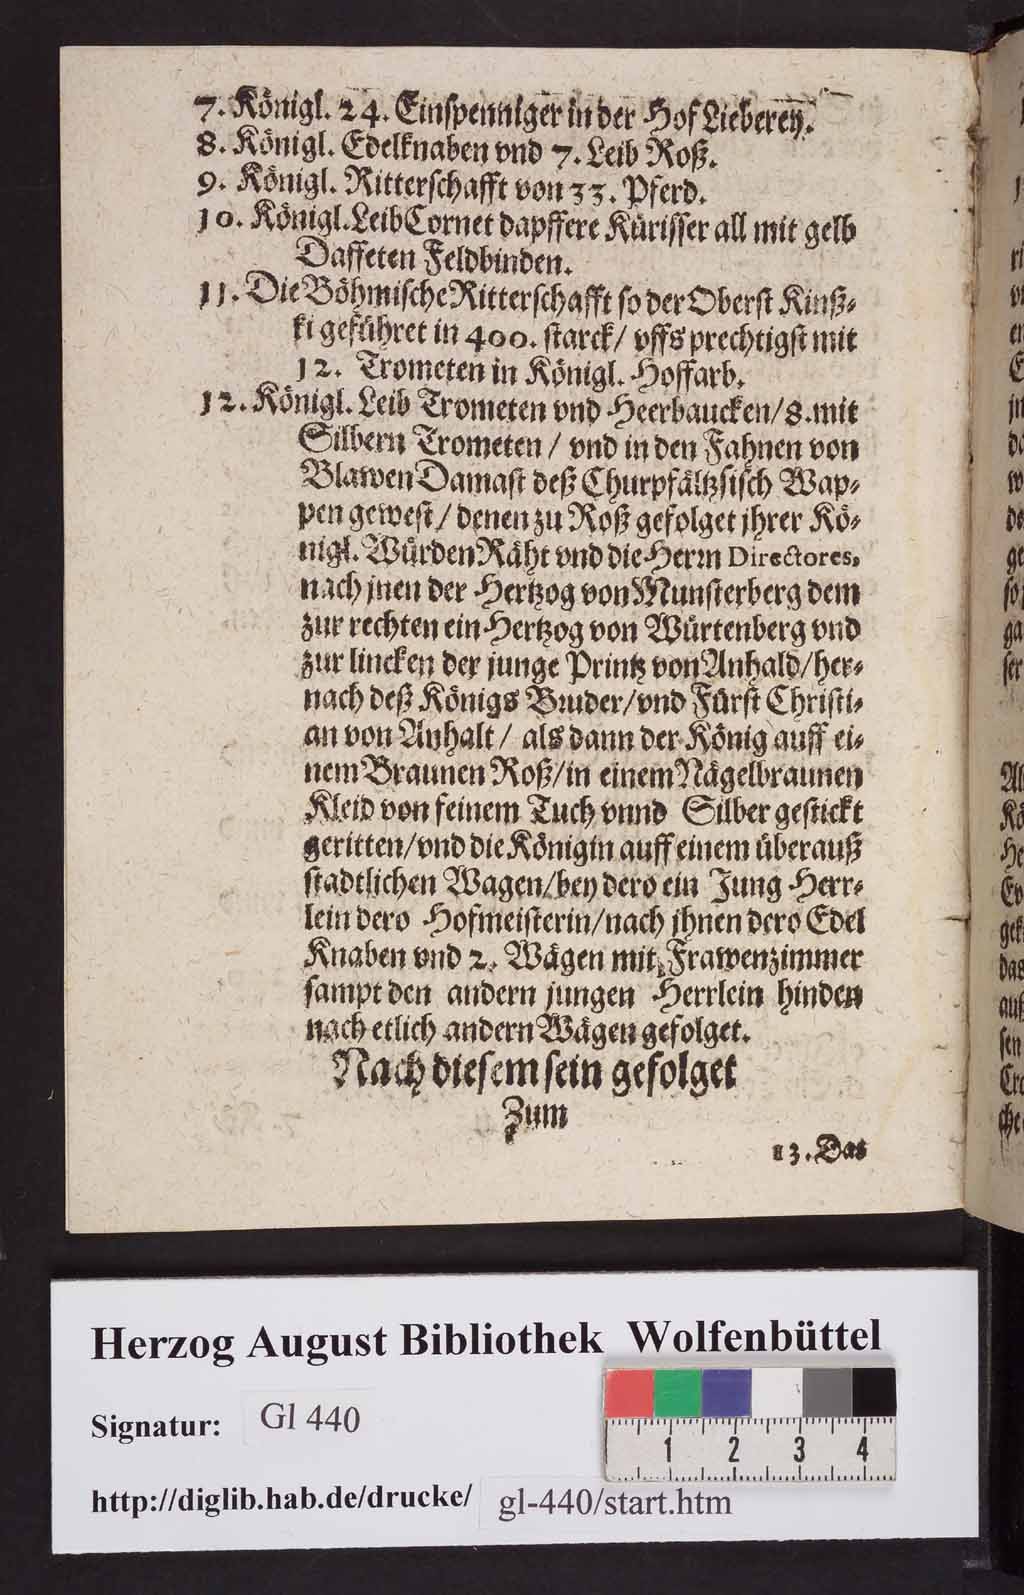 7. Königl. 24. Einspenniger in der Hof Lieberey.
8. Königl. Edelknaben vnd 7. Leib Roß.
9. Königl. Ritterschafft von 33. Pferd.
10. Königl. Leib Cornet dapffere Kürisser all mit gelb
Daffeten Feldbinden.
11. Die Böhmische Ritterschafft so der Oberst Kinß-
ki geführet in 400. starck/ vffs prechtigst mit
12. Trometen in Königl. Hoffarb.
12. Königl. Leib Trometen vnd Heerbaucken/ 8. mit
Silbern Trometen / vnd in den Fahnen von
Blawen Damast deß Churpfältzsisch Wap-
pen gewest/ denen zu Roß gefolget jhrer Kö-
nigl. Würden Räht vnd die Herrn Directores,
nach jnen der Hertzog von Munsterberg dem
zur rechten ein Hertzog von Würtenberg vnd
zur lincken der junge Printz von Anhald/ her-
nach deß Königs Bruder/ vnd Fürst Christi-
an von Anhalt / als dann der König auff ei-
nem Braunen Roß/ in einem Nägelbraunen
Kleid von feinem Tuch vnnd Silber gestickt
geritten/ vnd die Königin auff einem überauß
stadtlichen Wagen/ bey dero ein Jung Herr-
lein dero Hofmeisterin/ nach jhnen dero Edel
Knaben vnd 2. Wägen mit Frawenzimmer
sampt den andern jungen Herrlein hinden
nach etlich andern Wägen gefolget.
Nach diesem sein gefolget
Zum
13. Das
Herzog August Bibliothek Wolfenbüttel
Signatur: Gl 440
1 2 3 4
http://diglib.hab.de/drucke/ gl-440/start.htm